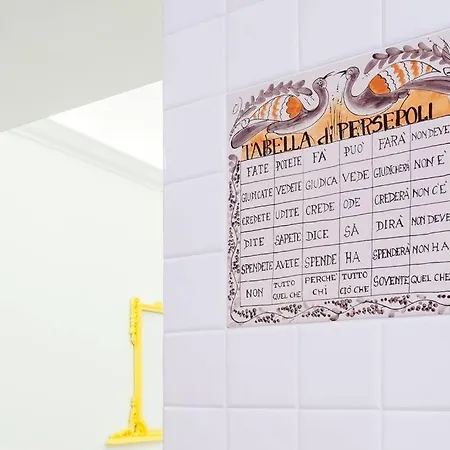 TABELLA di PERSEPOLI
FATE POTETE FÀ PUO' FARÀ NON DEVE
GIUDICATE VEDETE GIUDICA VEDE GIUDICHERÀ NON È
CREDETE UDITE CREDE ODE CREDERÀ NON C'È
DITE SAPETE DICE SÀ DIRÀ NON DEVE
SPENDETE AVETE SPENDE HA SPENDERÀ NON HA
NON TUTTO QUEL CHE PERCHE' CHI TUTTO CIÒ CHE SOVENTE QUEL CHE